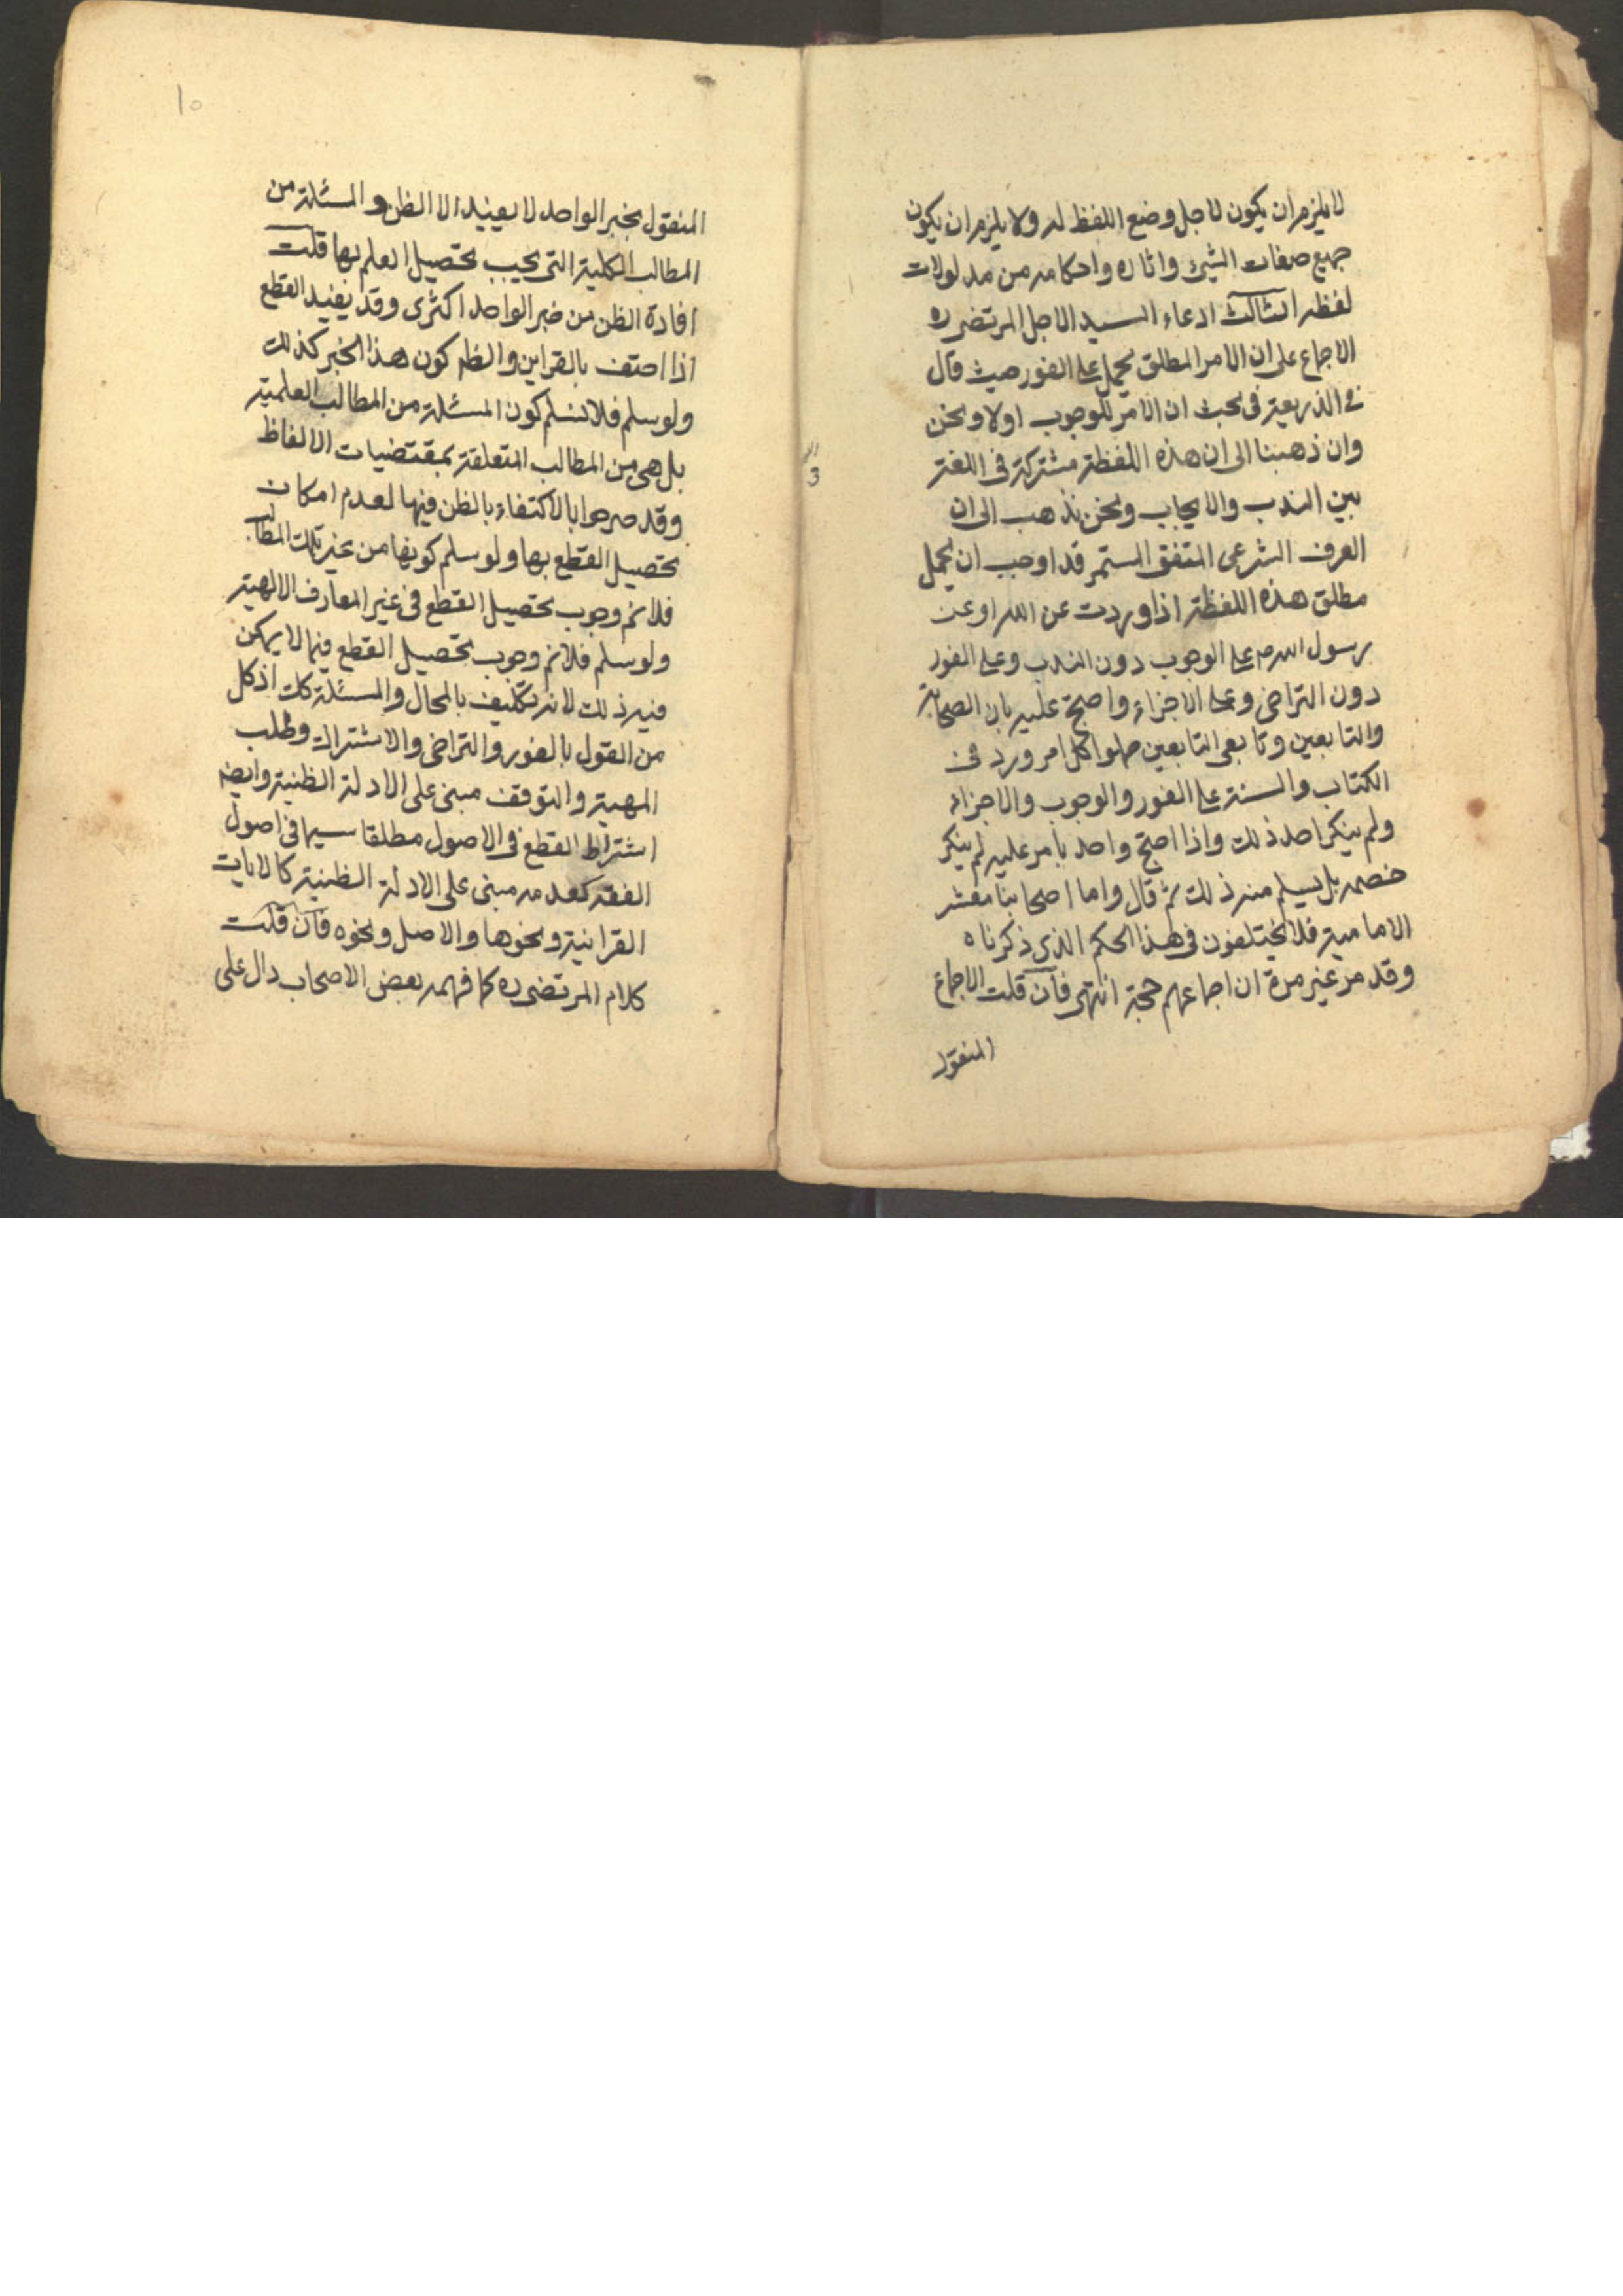 لا يلزم ان يكون لاجل وضع اللفظ له ولا يلزم ان يكون
جميع صفات الشيئ واثاره واحكامه من مدلولات
لفظه الثالث ادعاء السيد الاجل المرتضى ره
الاجماع على ان الامر المطلق يحمل على الفور حيث قال
في الذريعة في بحث ان الامر للوجوب اولا ونحن
وان ذهبنا الى ان هذه اللفظة مشتركة في اللغة
بين الندب والايجاب ونحن نذهب الى ان
العرف الشرعى المتفق المستمر قد اوجب ان يحمل
مطلق هذه اللفظة اذا وردت عن الله او عن
رسول الله ص على الوجوب دون الندب وعلى الفور
دون التراخى وعلى الاجزاء واحتج عليه بان الصحابة
والتابعين وتابعى التابعين حملوا كل امر ورد في
الكتاب والسنة على الفور والوجوب والاجزاء
ولم ينكر احد ذلك واذا احتج واحد بامر عليه لم ينكر
خصمه بل يسلم منه ذلك ثم قال واما اصحابنا معشر
الامامية فلا يختلفون في هذا الحكم الذى ذكرناه
وقد مر غير مرة ان اجماعهم حجة انتهى فان قلت الاجماع
المنقول
١٥
المنقول بخبر الواحد لا يفيد الا الظن والمسئلة من
المطالب الكلية التى يجب تحصيل العلم بها قلت
افادة الظن من خبر الواحد اكثرى وقد يفيد القطع
اذا احتف بالقراين والظ كون هذا الخبر كذلك
ولو سلم فلا نسلم كون المسئلة من المطالب العلمية
بل هى من المطالب المتعلقة بمقتضيات الالفاظ
وقد صرحوا بالاكتفاء بالظن فيها لعدم امكان
تحصيل القطع بها ولو سلم كونها من غير تلك المطالب
فلا نم وجوب تحصيل القطع في غير المعارف الالهية
ولو سلم فلا نم وجوب تحصيل القطع فيما لا يمكن
فيه ذلك لانه تكليف بالمحال والمسئلة كك اذ كل
من القول بالفور والتراخى والاشتراك وطلب
المهية والتوقف مبنى على الادلة الظنية وايضا
اشتراط القطع في الاصول مطلقا سيما في اصول
الفقه كعدمه مبنى على الادلة الظنية كالايات
القرانية ونحوها والاصل ونحوه فان قلت
كلام المرتضى ره كما فهمه بعض الاصحاب دال على